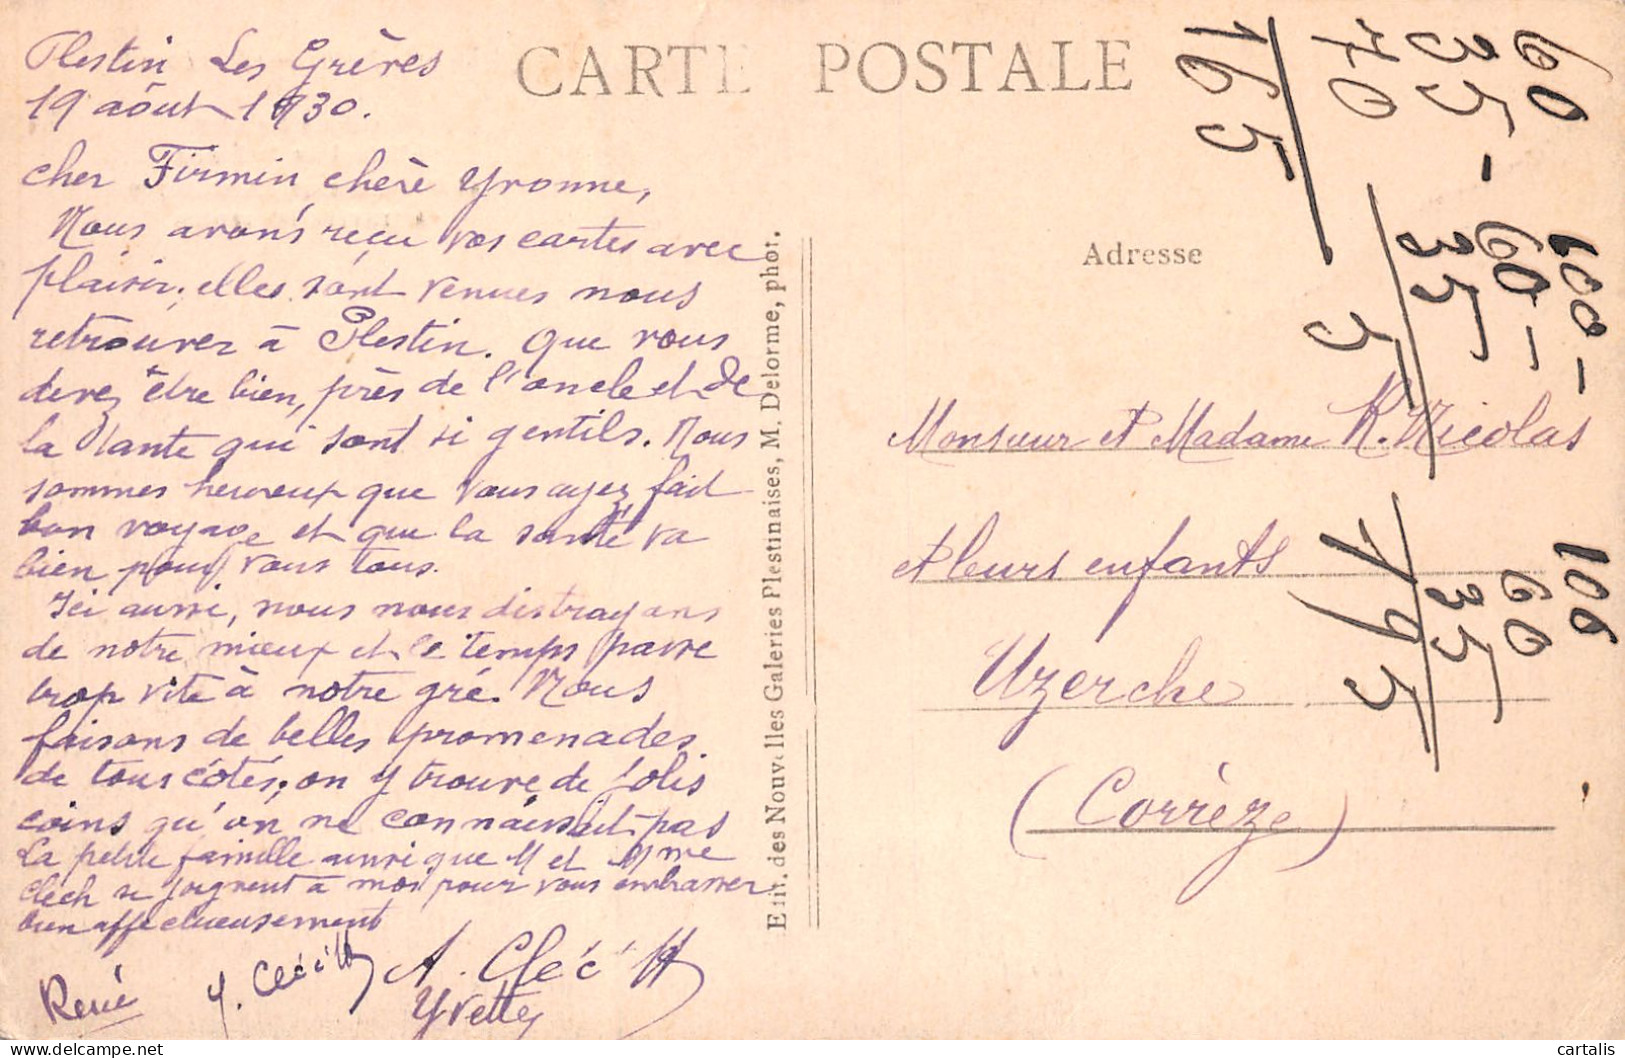 CARTE POSTALE
Plestin Les Grères
19 août 1930.
cher Firmin, chère Yvonne,
Nous avons reçu vos cartes avec
plaisir, elles sont venues nous
retrouver à Plestin. Que vous
devez être bien, près de l'oncle et de
la tante qui sont si gentils. Nous
sommes heureux que vous ayez fait
bon voyage et que la santé va
bien pour vous tous.
Ici aussi, nous nous distrayons
de notre mieux et le temps passe
trop vite à notre gré. Nous
faisons de belles promenades
de tous côtés; on y trouve de jolis
coins qu'on ne connaissait pas
La petite famille ainsi que M et Mme
Clech se joignent à moi pour vous embrasser
bien affectueusement
René Y. A.
Yvette
Edit. des Nouvelles Galeries Plestinaises, M. Delorme, phot.
Adresse
Monsieur et Madame K. Nicolas
et leurs enfants
Uzerche
(Corrèze)
60
35 -
70
165
100 -
60 -
35
5
100
60
35
195
cartalis